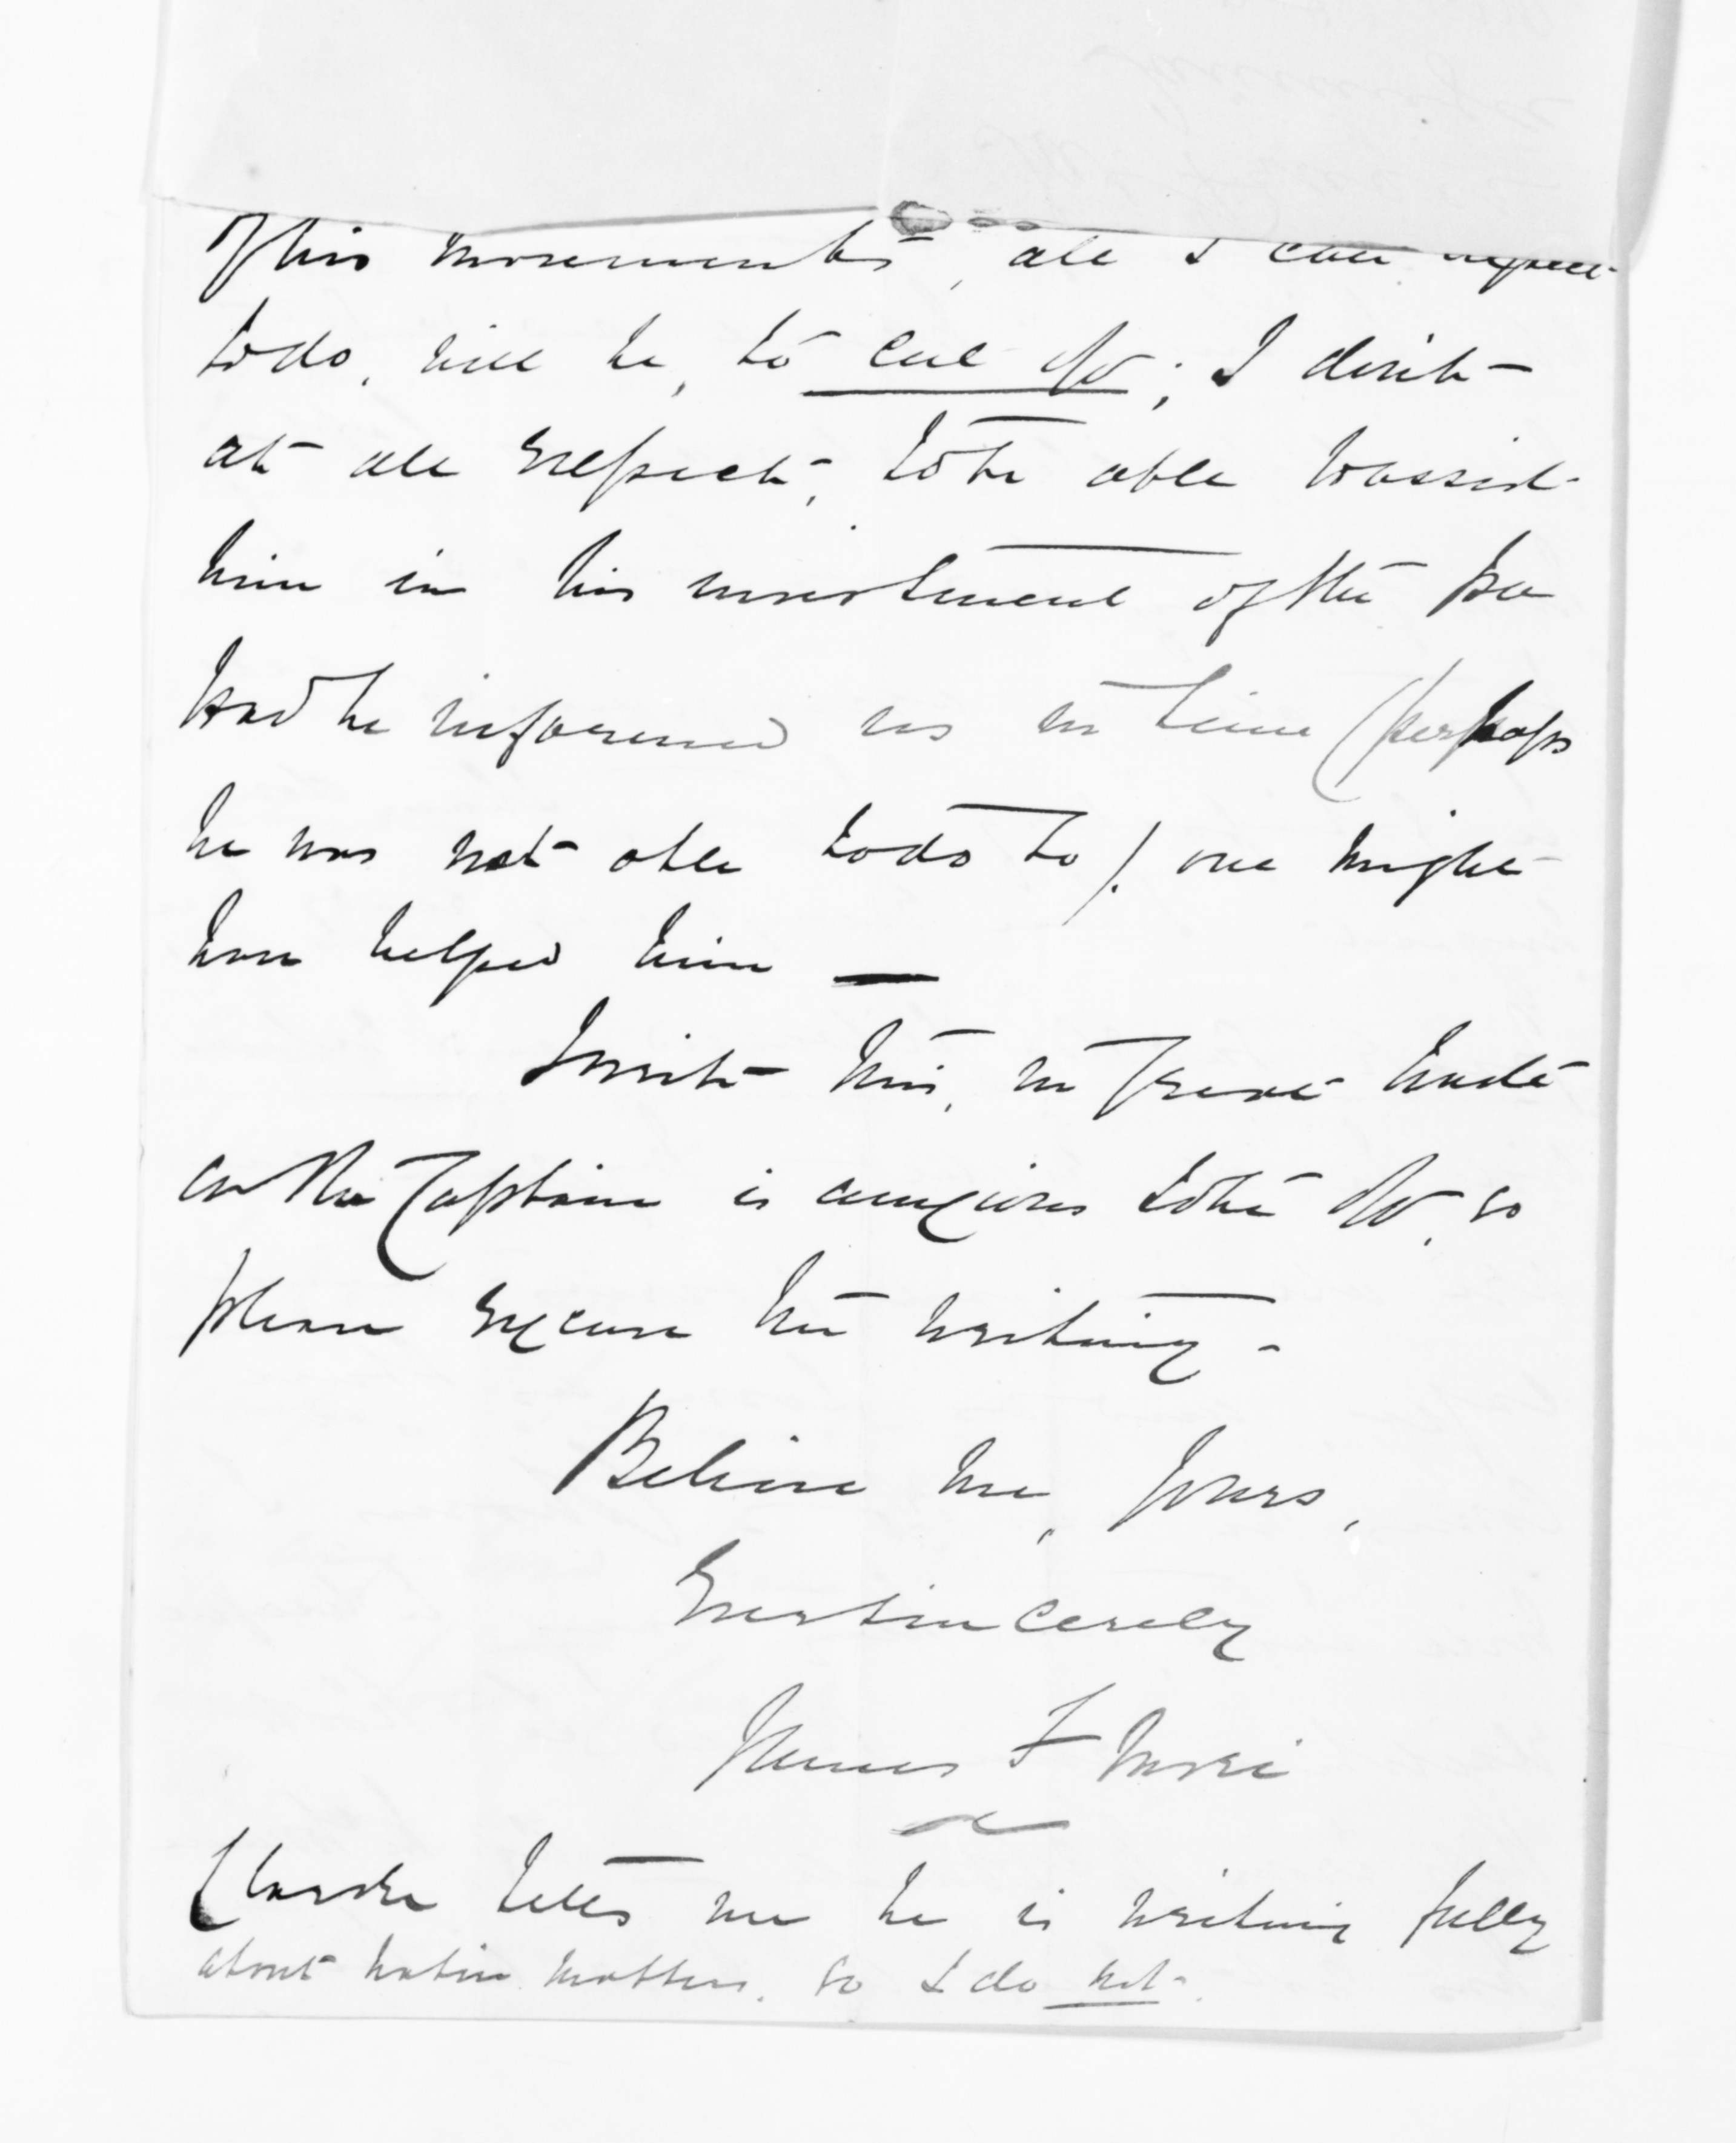 of his movements, all I can expect
to do, will be, to cut off; I didn't
at all expect, to be able to assist
him in his investment of the Pa
had he informed us in time (perhaps
he was not able to do so). one might
have helped him —
I write this, in great haste
as the Captain is anxious to be off, so
please excuse the writing -
Believe me, yours,
Ever sincerely
James F
Clarke tells me he is writing fully
about native matters. so I do not.